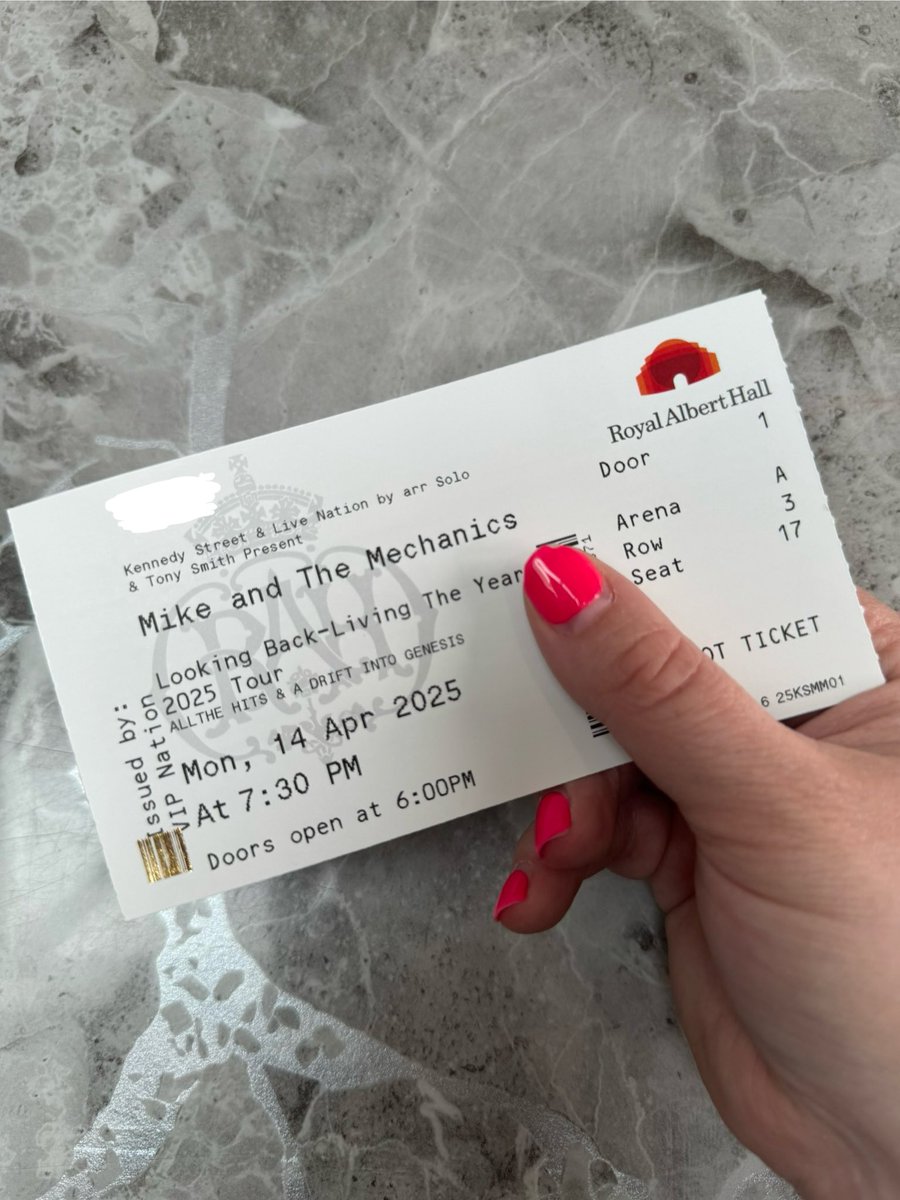 Royal Albert Hall
Door 1
Arena A
Row 3
Seat 17
OT TICKET
6 25KSMM01
Kennedy Street & Live Nation by arr Solo
& Tony Smith Present
Mike and The Mechanics
Looking Back-Living The Year
2025 Tour
ALLTHE HITS & A DRIFT INTO GENESIS
Mon, 14 Apr 2025
At 7:30 PM
Doors open at 6:00PM
Issued by:
VIP Nation